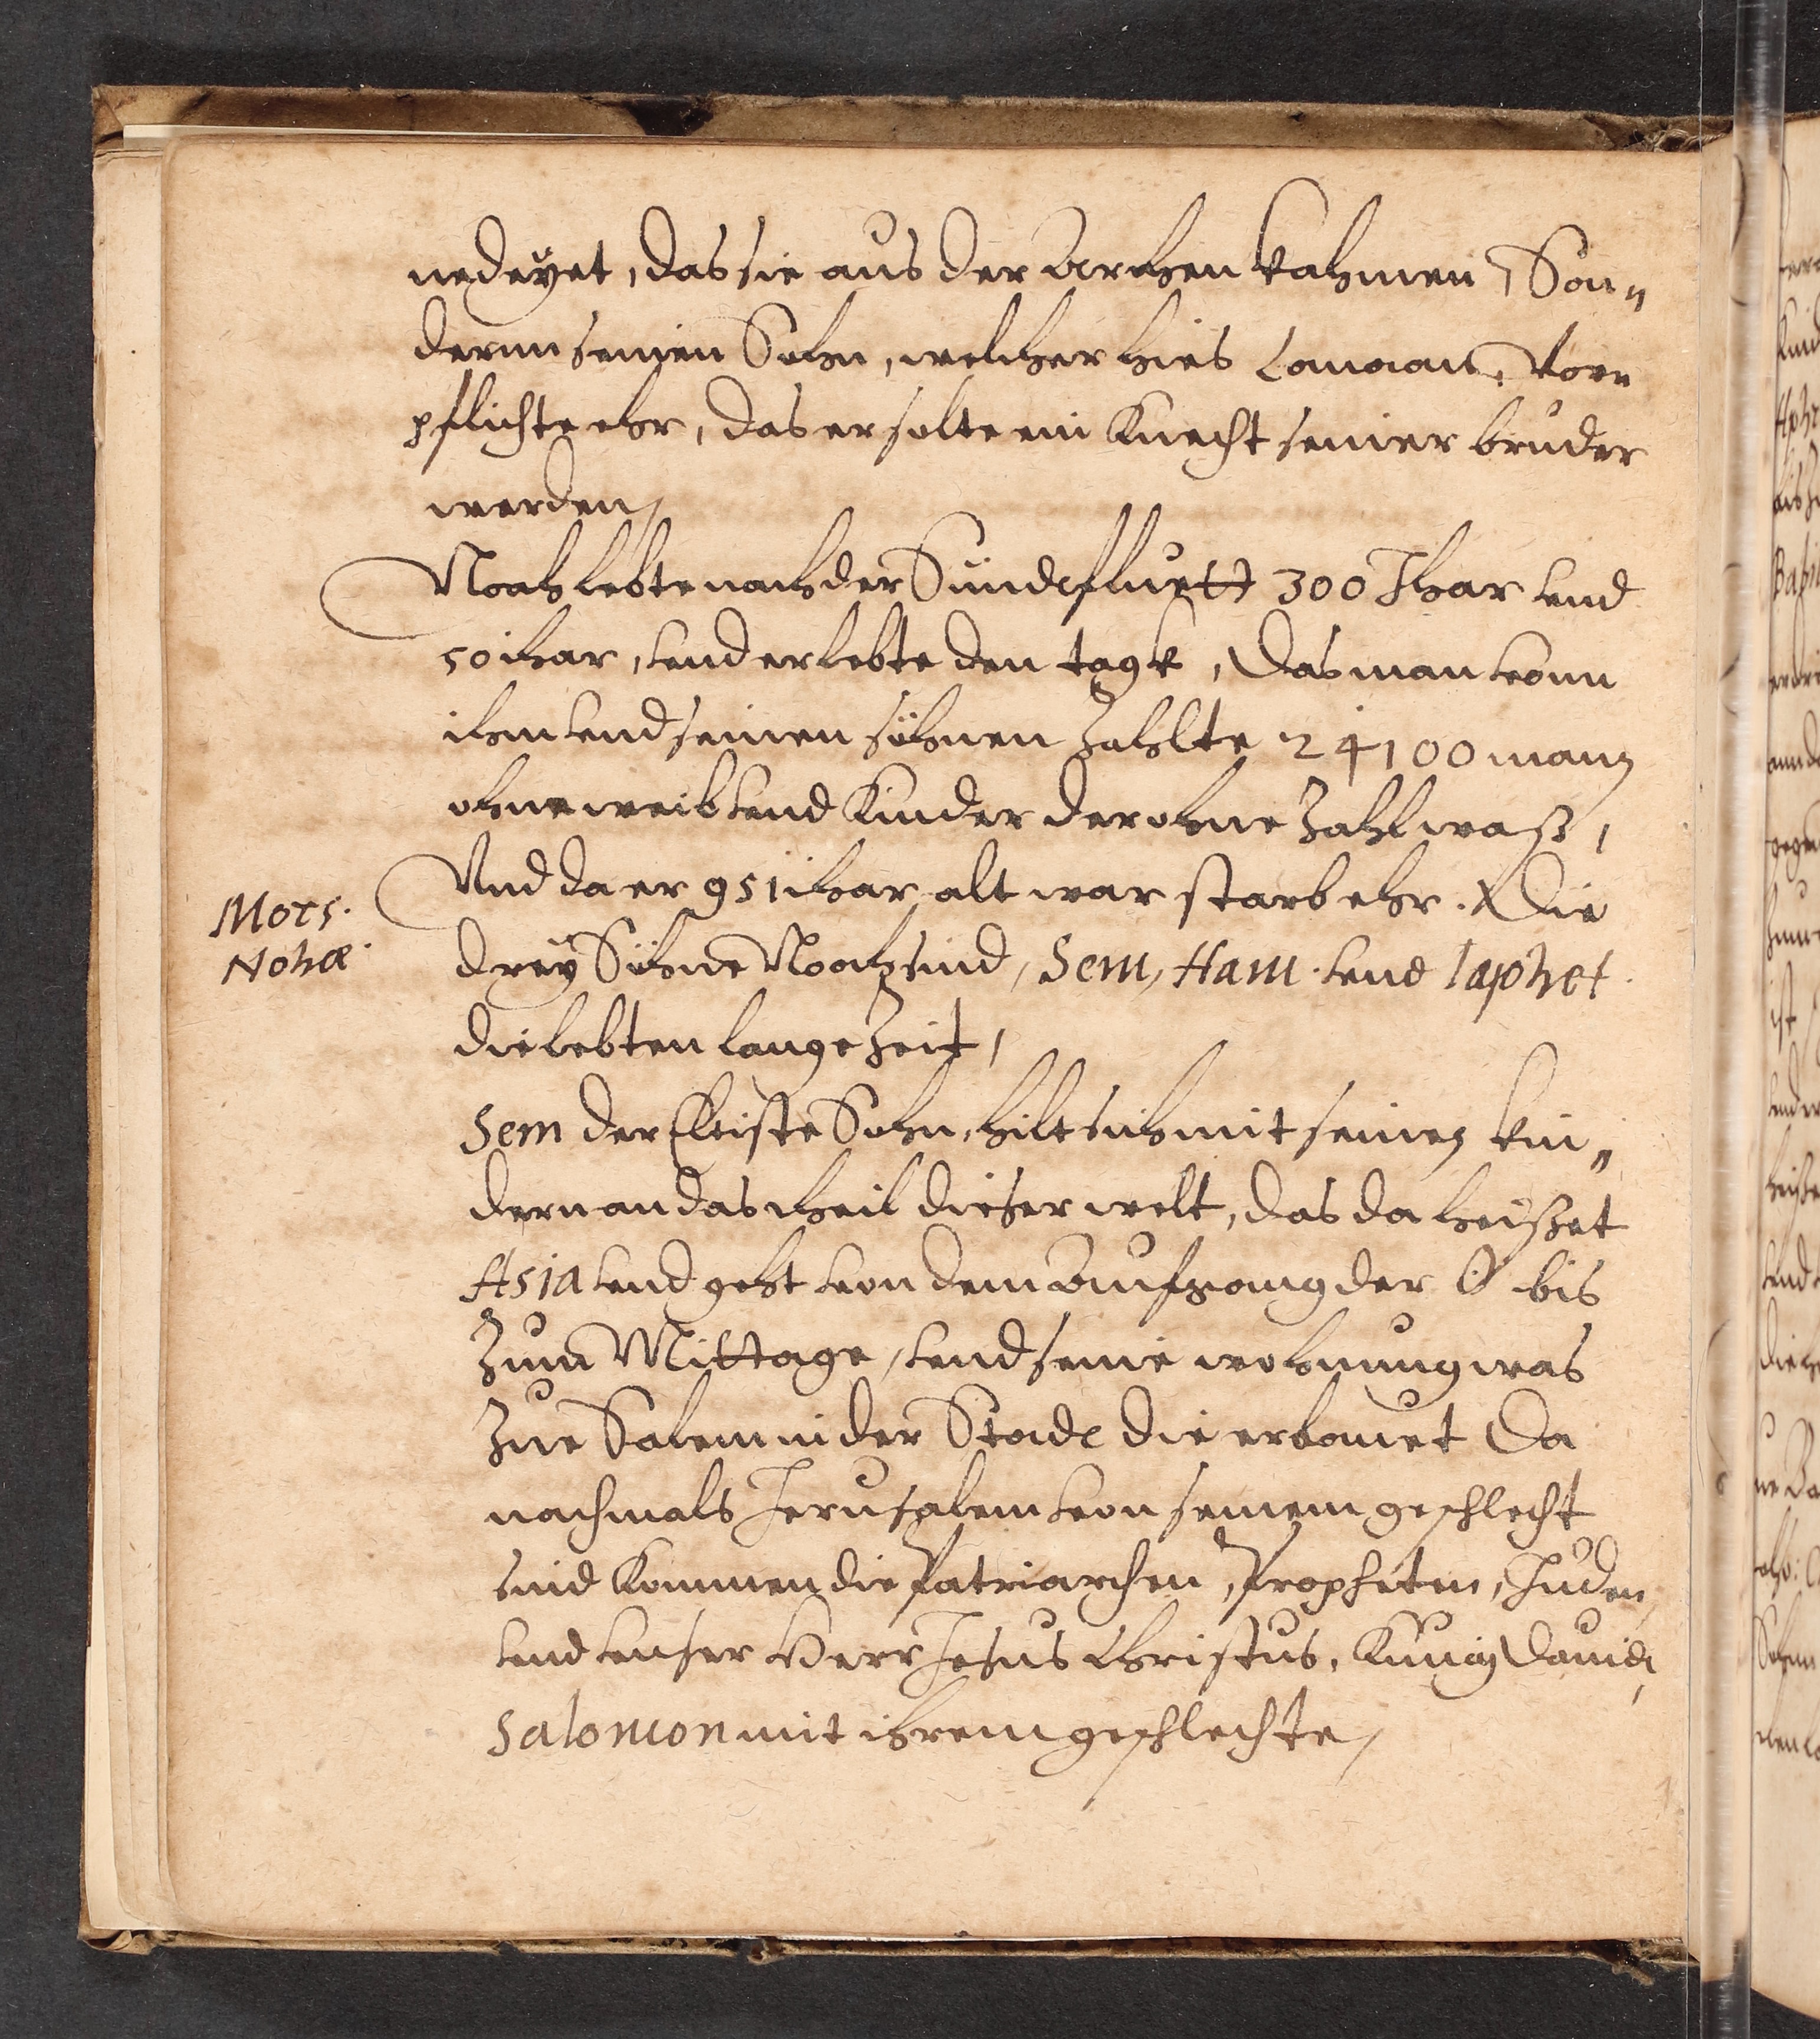 nedeyet, das sie aus der Archen kahmen, Son„
dernn seinen Sohn, welcher hies Canaan, vor„
pflichte ehr, das er solte ein Knecht seiner bruder
werden,
Noah lebte nach der Sündeflutt 300 Jhar vnd
50 ihar, vnd erlebte den tagk, Das man vonn
ihm vnd seinen söhnen Zahlte 24100 mann
ohne weib vnd Kinder der ohne Zahl wass,
Vnd da er 951 ihar alt war starb ehr. Die
Mors.
Nohæ.
drey Söhne Noah sind, Sem, Ham. vnd Iaphet.
die lebten lange Zeit,
Sem der Elteste Sohn, hilt sich mit seinen kin„
dern an das theil dieser welt, das da heisset
Asia vnd geht von dem Aufgang der ☉ bis
Zum Mittage, vnd seine wohnung was
Zue Salem in der Stadt die er bauet Da
nachmals Jerusalem von seinem geschlecht
sind kommen die Patriarchen, Propheten, Juden,
vnd vnser Herr Jesus Christus, Künig Dauidt,
Salomon mit ihrem geschlechte,